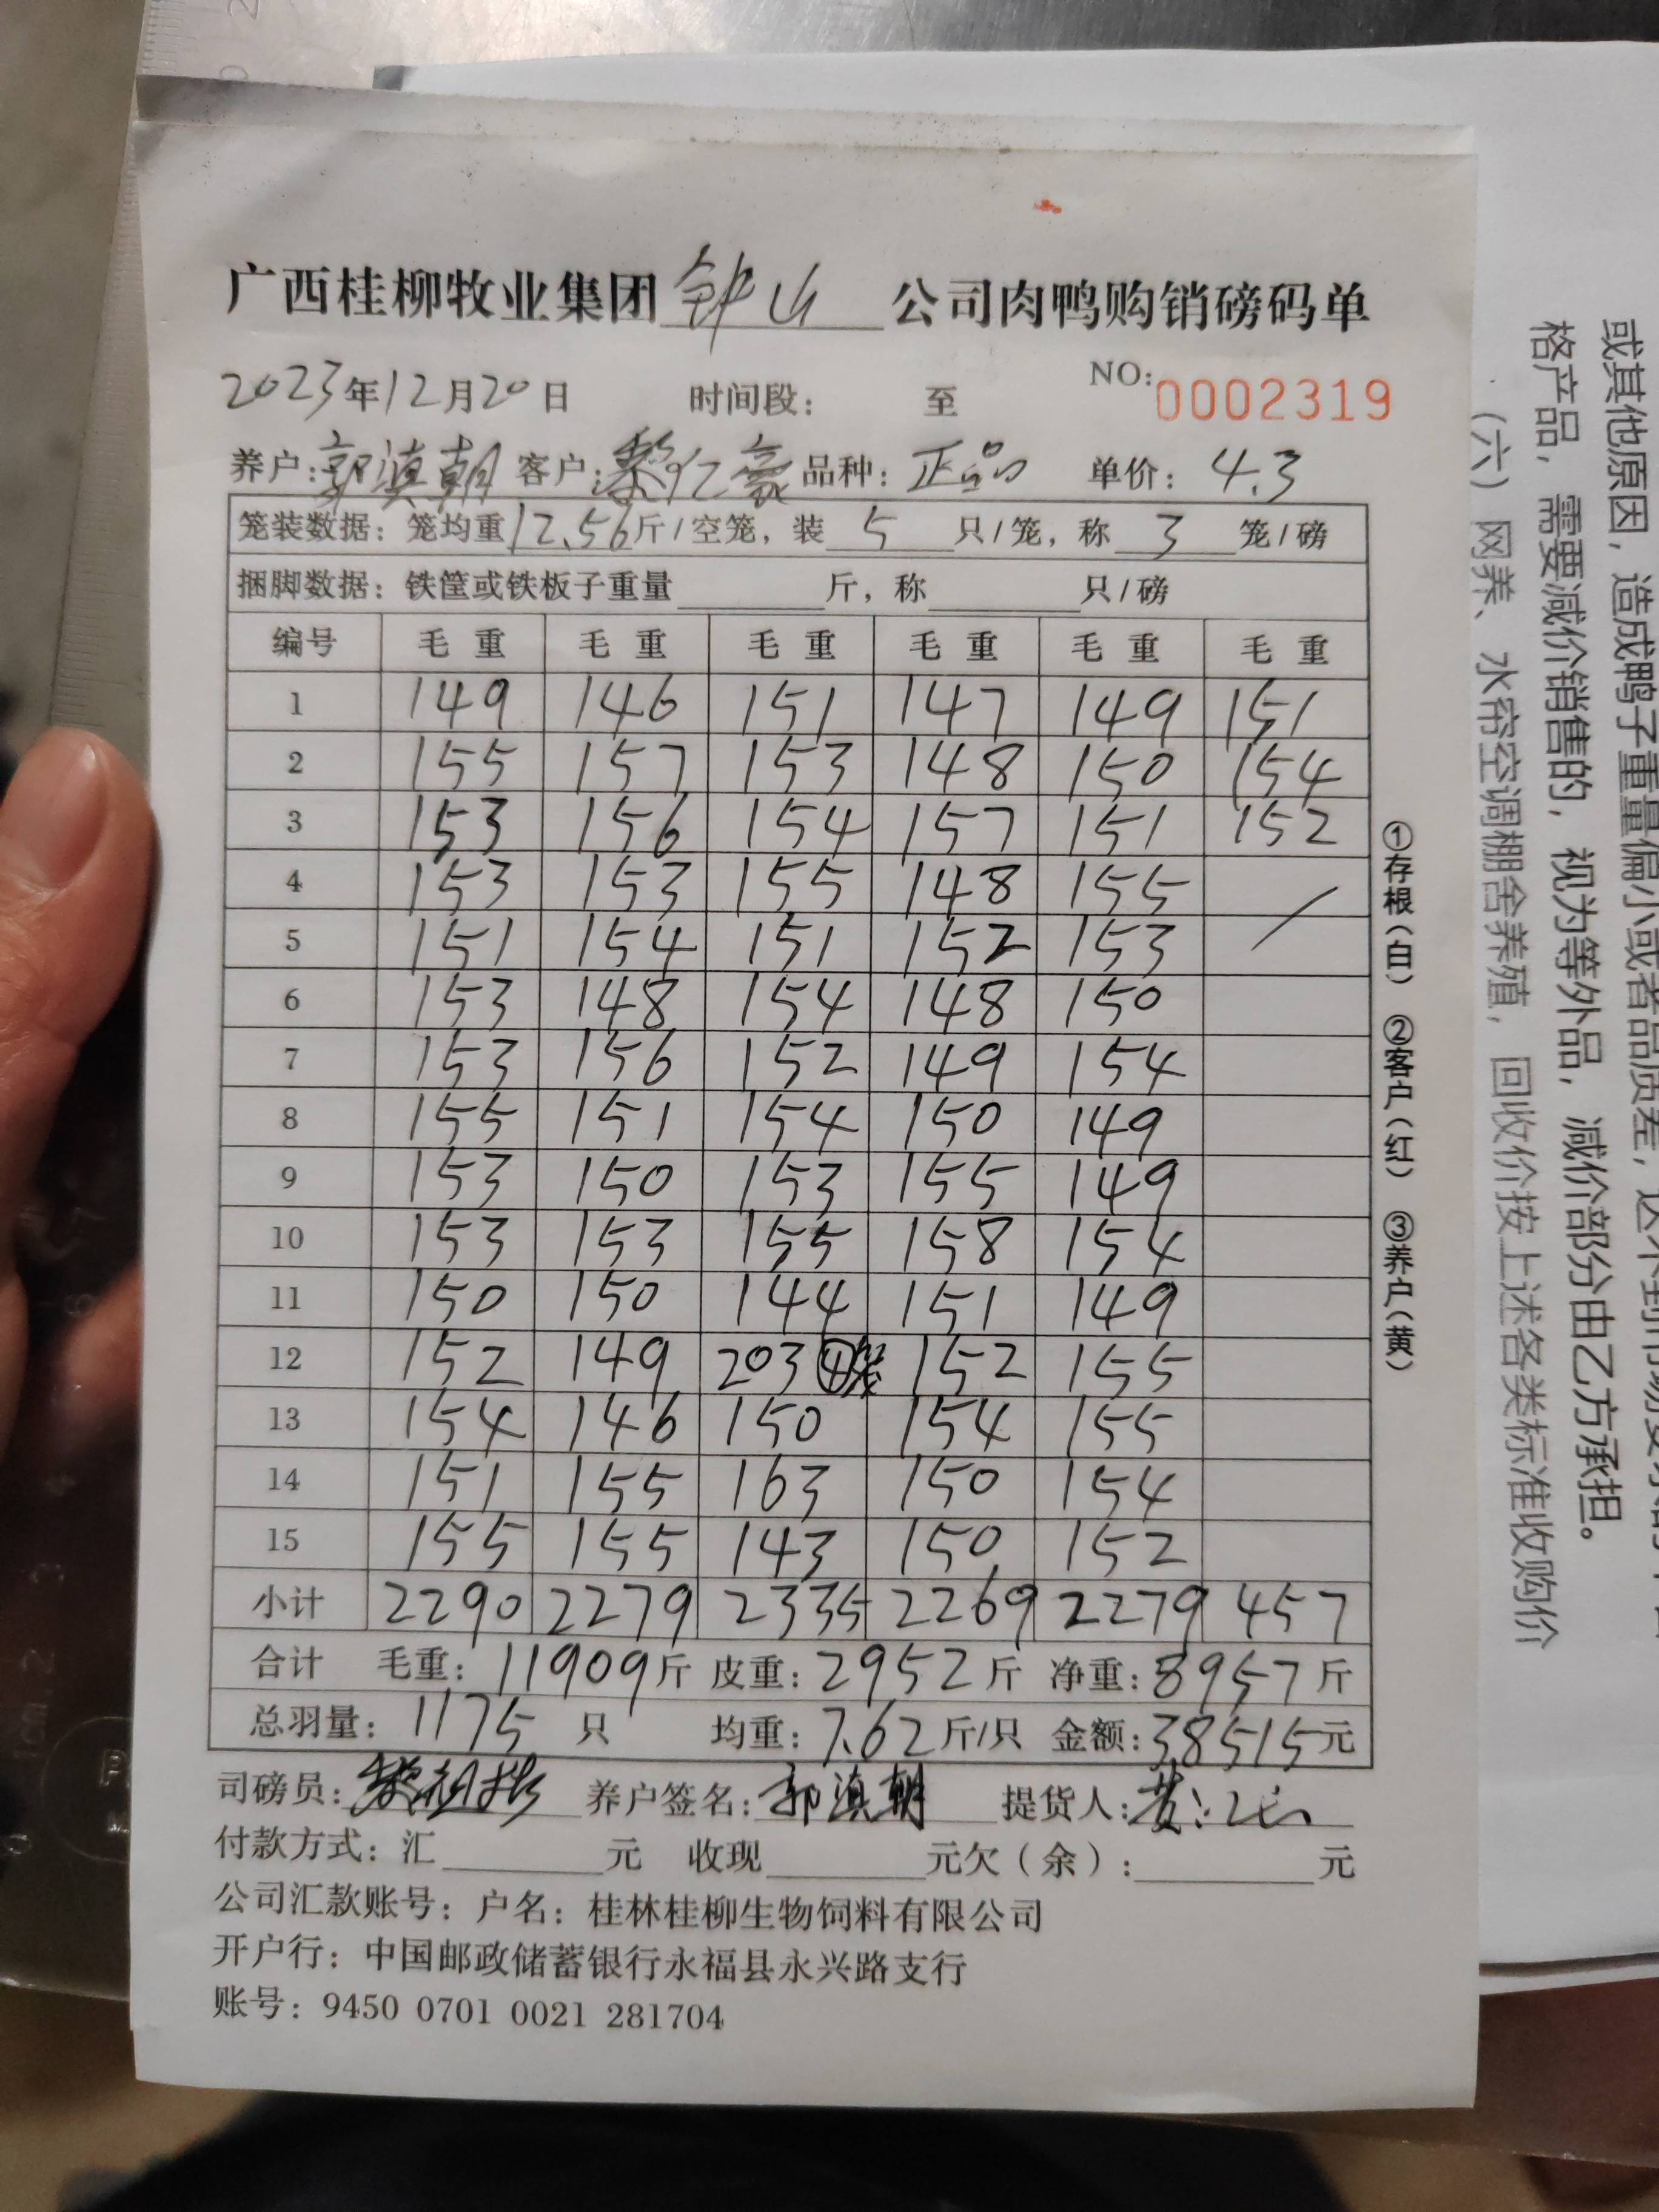 广西桂柳牧业集团 钟山 公司肉鸭购销磅码单
2023年12月20日 时间段: 至 NO:0002319
养户:郭滇朝 客户:黎仁豪 品种:正品 单价:4.3
笼装数据:笼均重12.56斤/空笼,装5只/笼,称3笼/磅
捆脚数据:铁筐或铁板子重量 斤,称 只/磅
编号 毛重 毛重 毛重 毛重 毛重 毛重
1 149 146 151 147 149 151
2 155 157 153 148 150 154
3 153 156 154 157 151 152
4 153 153 155 148 155
5 151 154 151 152 153
6 153 148 154 148 150
7 153 156 152 149 154
8 155 151 154 150 149
9 153 150 153 155 149
10 153 153 155 158 154
11 150 150 144 151 149
12 152 149 203④笼 152 155
13 154 146 150 154 155
14 151 155 163 150 154
15 155 155 143 150 152
小计 2290 2279 2335 2269 2279 457
合计 毛重:11909斤 皮重:2952斤 净重:8957斤
总羽量:1175只 均重:7.62斤/只 金额:38515元
司磅员: 养户签名:郭滇朝 提货人:
付款方式:汇 元 收现 元欠(余): 元
公司汇款账号:户名:桂林桂柳生物饲料有限公司
开户行:中国邮政储蓄银行永福县永兴路支行
账号:9450 0701 0021 281704
①存根(白) ②客户(红) ③养户(黄)
或其他原因,造成鸭子重量偏小或者品质差,达不到市场要求的
格产品,需要减价销售的,视为等外品,减价部分由乙方承担。
(六)网养、水帘空调棚舍养殖,回收价按上述各类标准收购价